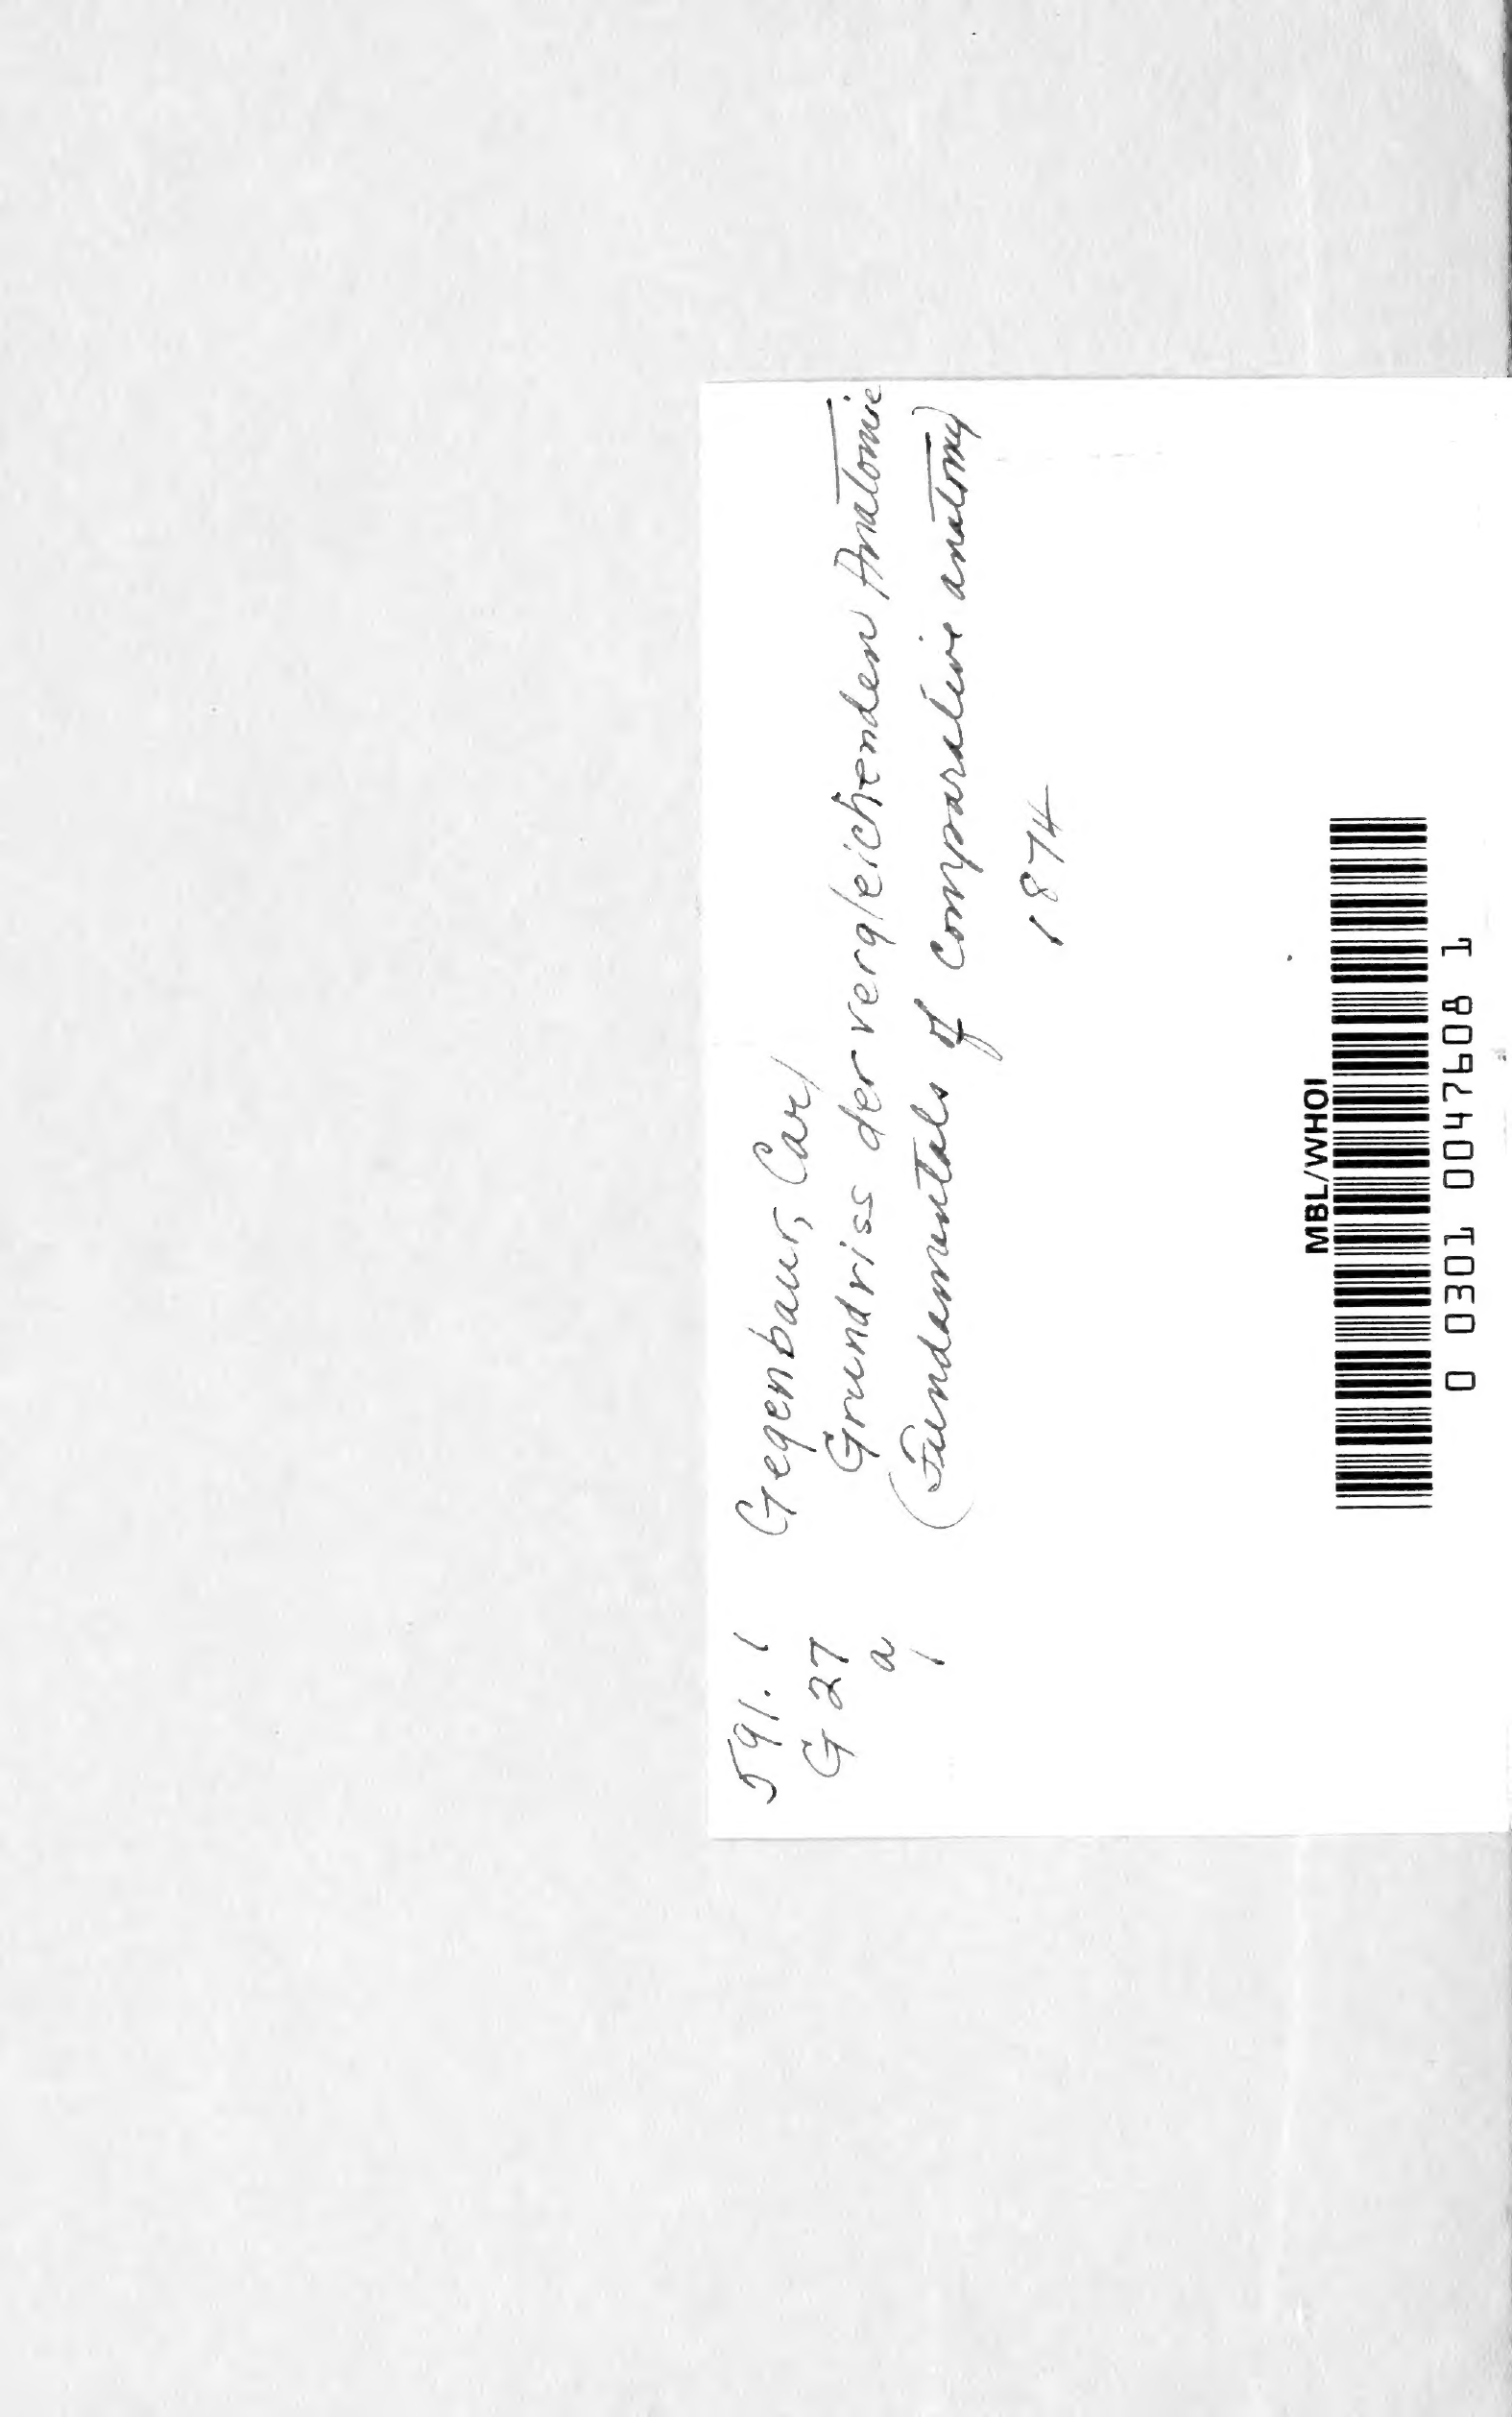 591.1 Gegenbaur, Carl
G 27 Grundriss der vergleichenden Anatomie
a (Fundamentals of Comparative anatomy)
1
1874
MBL/WHOI
0 0301 0047608 1